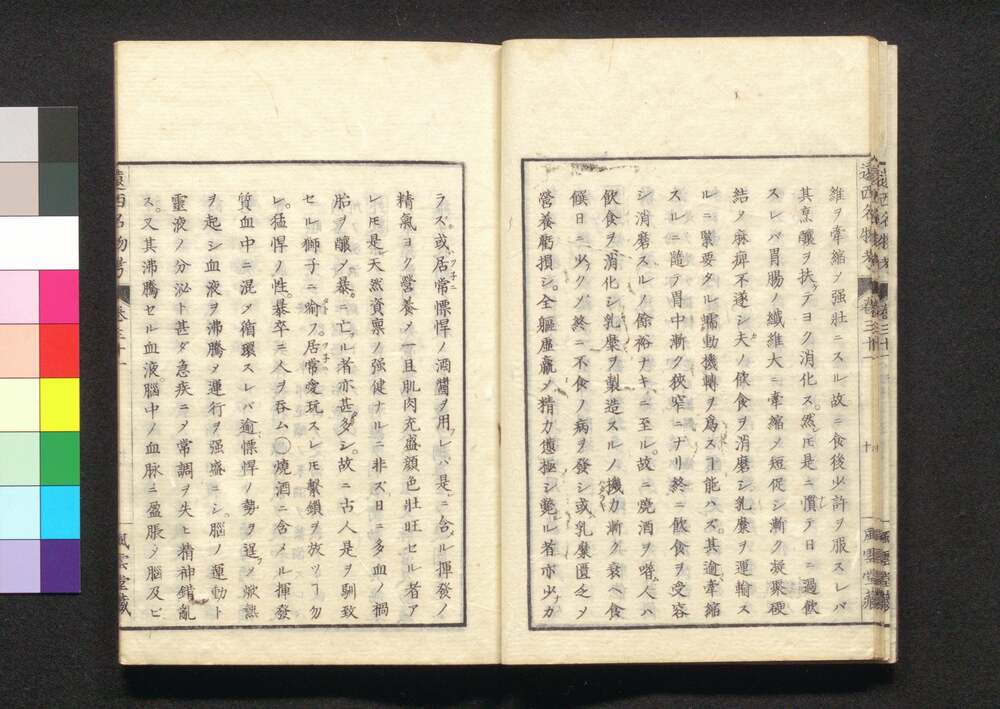 維ヲ牽縮ノ强壯ニスル故ニ食後少許ヲ服スレバ
其烹釀ヲ扶テヨク消化ス然レ𪜈是ニ慣テ日ニ過飲
スレバ胃腸ノ纖維大ニ牽縮メ短促シ漸ク凝聚硬
結メ麻痺不遂シ夫ノ飲食ヲ消磨シ乳糜ヲ運輸ス
ルニ緊要タル蠕動機轉ヲ爲スヿ能ハズ其逾牽縮
スルニ隨テ胃中漸ク狹窄ニナリ終ニ飲食ヲ受容
シ消磨スルノ餘裕ナキニ至ル故ニ燒酒ヲ嗜人ハ
飲食ヲ消化シ乳糜ヲ製造スルノ機力漸ク衰へ食
候日ニ少クメ終ニ不食ノ病ヲ發シ或乳糜匱乏メ
營養虧損シ全軀虛羸メ精力憊極シ斃ル者亦少カ
遠西名物考 卷三十一 十 風雲堂藏
ラズ或居常慓悍ノ酒醬ヲ用レバ是ニ含ル揮發ノ
精氣ヨク營養メ一旦肌肉充盛顏色壯旺セル者ア
レ𪜈是天然資稟ノ强健ナルニ非ズ日ニ多血ノ禍
胎ヲ釀メ暴ニ亡ル者亦甚多シ故ニ古人是ヲ馴致
セル獅子ニ喩フ居常愛玩スレ𪜈繫鎖ヲ放ツヿ勿
レ猛悍ノ性暴卒ニ人ヲ吞ム○燒酒ニ含メル揮發
質血中ニ混メ循環スレバ逾慓悍ノ勢ヲ逞メ焮熱
ヲ起シ血液ヲ沸騰メ運行ヲ强盛ニシ腦ノ運動ト
靈液ノ分泌ト甚ダ急疾ニメ常調ヲ失ヒ精神錯亂
ス又其沸騰セル血液腦中ノ血脈ニ盈脹メ腦及ビ
遠西名物考 卷三十一 風雲堂藏